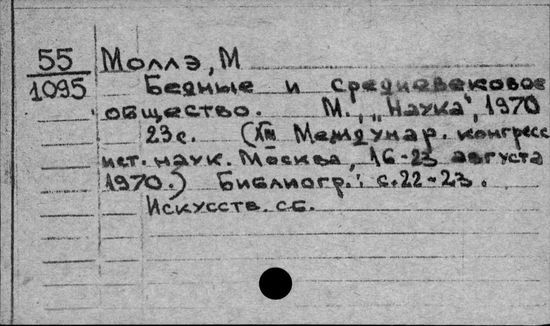 55
1095
Моллэ, М
Бедные и средневековое
общество. М., „Наука“, 1970
23с. (XIII Междунар. конгресс
ист. наук. Москва, 16-23 августа
1970.) Библиогр.: с.22-23.
Искусств. сб.